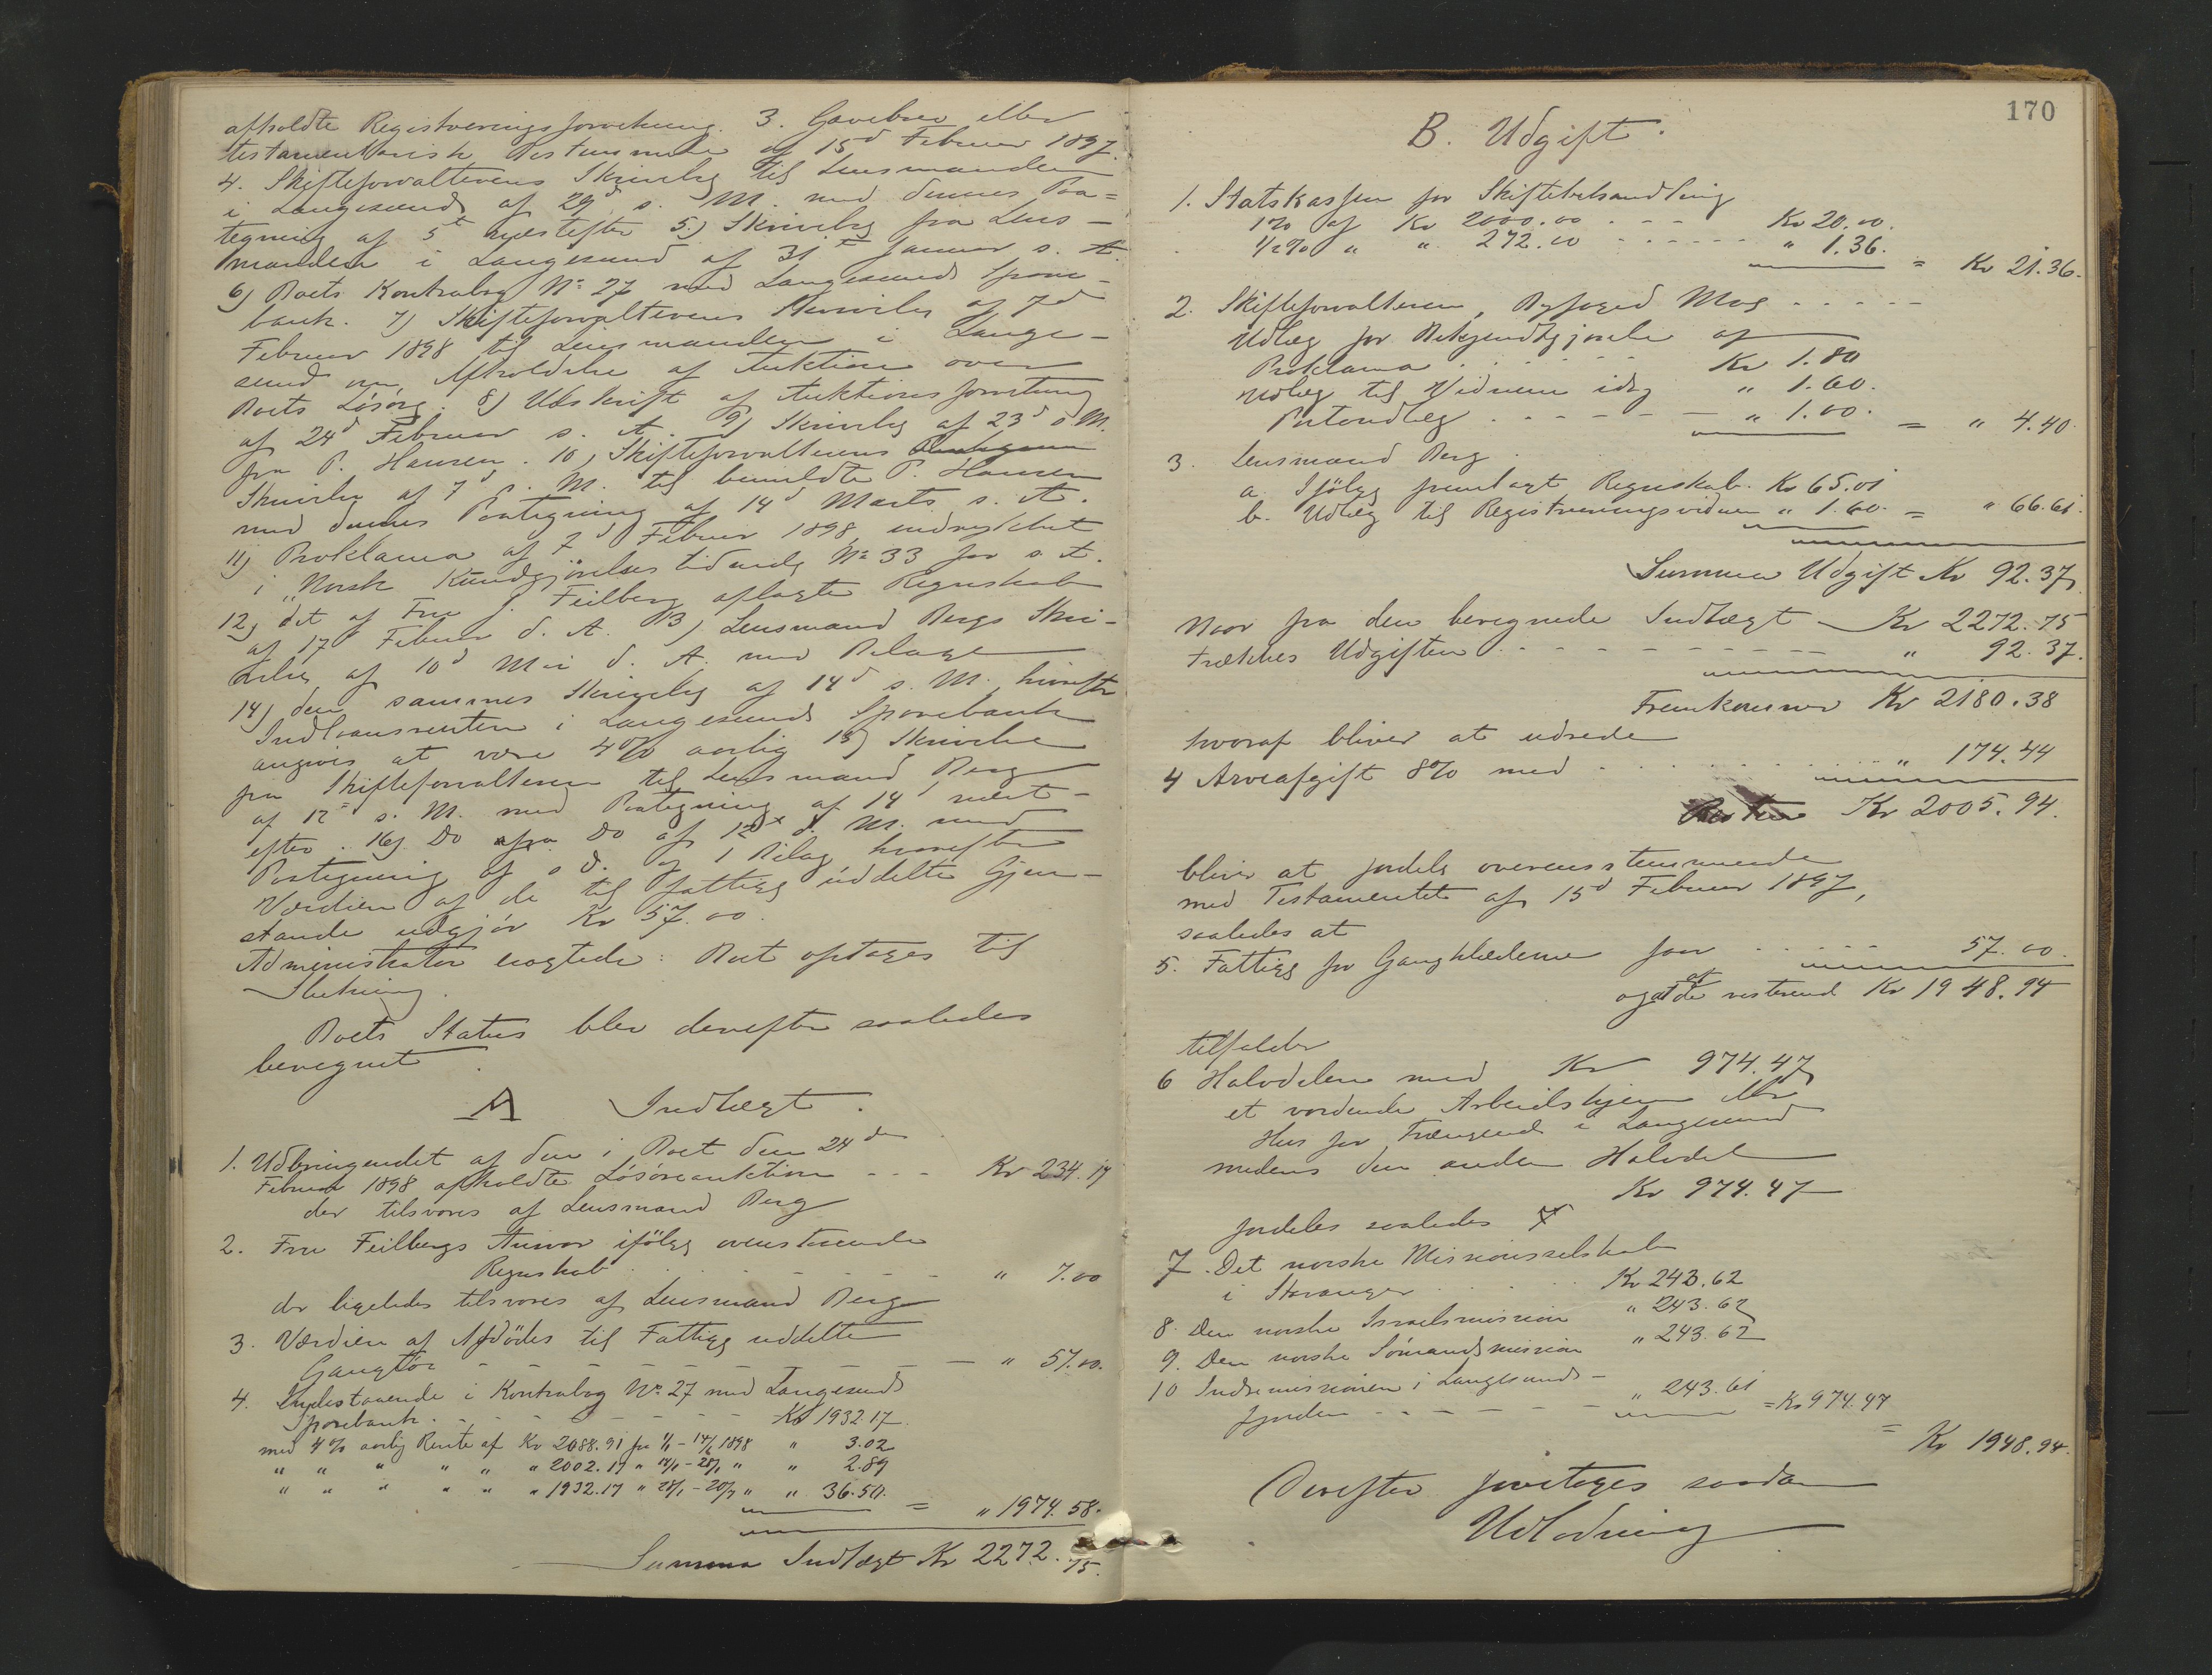 afholdte Registreringsforretning. 3. Gavebrev eller
testamentarisk Bestemmelse af 15d Februar 1897.
4. Skifteforvalterens Skrivelse til Lensmanden
i Langesund af 29d s. M. med dennes Paa=
tegning af 5t næstefter 5.) Skrivelse fra Lens-
manden i Langesund af 31t Januar s. A.
6) Boets Kontrabog No 27 med Langesunds Spare-
bank. 7) Skifteforvalterens Skrivelse af 7d
Februar 1898 til Lensmanden i Lange-
sund om Afholdelse af Auktion over
Boets Løsøre. 8) Udskrift af Auktionsforretning
af 24d Februar s. A. 9) Skrivelse af 23d s. M.
fra P. Hansen. 10) Skifteforvalterens
Skrivelse af 7d s. M. til bemeldte P. Hansen
med dennes Paategning af 14d Marts s. A.
11) Proklama af 7d Februar 1898 indrykket
i "Norsk Kundgjørelses tidende No 33 for s. A.
12) det af Fru J. Feilberg aflagte Regnskab
af 17d Februar d. A. 13) Lensmand Bergs Skri-
velse af 10d Mai d. A. med Bilage
14) den sammes Skrivelse af 14d s. M. hvorefter
Indlaansrenten i Langesunds Sparebank
angives at være 4% aarlig 15) Skrivelse
fra Skifteforvalteren til Lensmand Berg
af 12t s. M. med Paategning af 14d næst-
efter. 16) Do fra Do af 12t d. M. med
Paategning af s. D. og 1 Bilag hvorefter
Værdien af de til fattige uddelte Gjen-
stande udgjør Kr 57.00.
Administrator eragtede: Boet optages til
Slutning.
Boets Status blev derefter saaledes
beregnet.
A Indtægt.
1. Udbringendet af den i Boet den 24de
Februar 1898 afholdte Løsøreauktion - - - Kr 234.17
der tilsvares af Lensmand Berg
2. Fru Feilbergs Ansvar ifølge ovenstaaende
Regnskab . . . . . " 7.00
der ligeledes tilsvares af Lensmand Berg
3. Værdien af Afdødes til Fattige uddelte
Gangtøi - - - - - - " 57.00.
4. Indestaaende i Kontrabog No 27 med Langesunds
Sparebank . - - - - - Kr 1932.17.
med 4% aarlig Rente af Kr 2088.91 fra 1/1 - 14/1 1898 " 3.02
" " " " " " 2002.17 " 14/1 - 28/1 " " 2.89
" " " " " " 1932.17 " 28/1 - 20/7 " " 36.50. = " 1974.58.
Summa Indtægt Kr 2272.75.
170
B. Udgift.
1. Statskassen for Skiftebehandling
1% af Kr 2000.00 - - - Kr 20.00.
1/2% " " 272.00 - - - - - " 1.36. = Kr 21.36.
2. Skifteforvalteren, Byfoged Moe - - - - -
Udlæg for Bekjendtgjørelse af
Proklama . . . . . Kr 1.80
Udlæg til Vidnerne idag " 1.60.
Portoudlæg . - - - - - " 1.00. = " 4.40.
3. Lensmand Berg.
a. Ifølge fremlagt Regnskab. Kr 65.01
b. Udlæg til Registreringsvidner " 1.60. = " 66.61.
Summa Udgift Kr 92.37.
Naar fra den beregnede Indtægt - Kr 2272.75
trækkes Udgiften . - - - - - " 92.37.
Fremkommer Kr 2180.38
hvoraf bliver at udrede
4 Arveafgift 8% med . . . . . . " 174.44
Resten Kr 2005.94.
bliver at fordele overensstemmende
med Testamentet af 15d Februar 1897,
saaledes at
5. Fattige for Gangklæderne faar . . . . . 57.00.
og at af de resterende Kr 1948.94
tilfalder
6 Halvdelen med Kr 974.47
et vordende Arbeidshjem eller
Hus for Trængende i Langesund
medens den anden Halvdel
Kr 974.47
fordeles saaledes
7. Det norske Missionsselskab
i Stavanger . . . . Kr 243.62
8. Den norske Israelsmission " 243.62
9. Den norske Sømandsmission " 243.62
10 Indremissionen i Langesunds-
fjorden - - - - - " 243.61 = Kr 974.47
= Kr 1948.94.
Derefter foretoges saadan
Udlodning